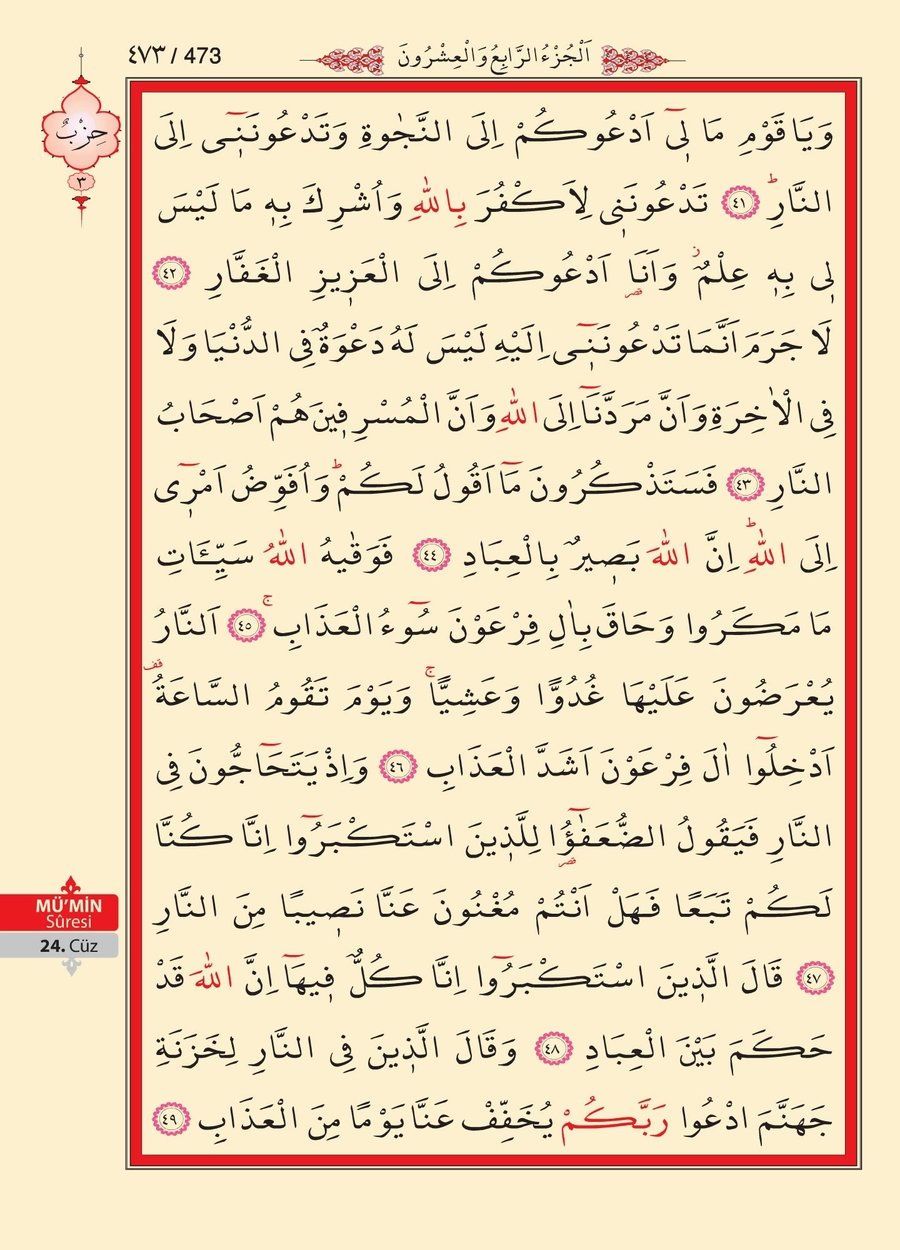 ٤٧٣ / 473
اَلْجُزْءُ الرَّابِعُ وَالْعِشْرُونَ
حِزْبٌ
٣
وَيَا قَوْمِ مَا لِٓى اَدْعُوكُمْ اِلَى النَّجٰوةِ وَتَدْعُونَنِٓى اِلَى
النَّارِۜ ٤١ تَدْعُونَنِى لِاَكْفُرَ بِاللّٰهِ وَاُشْرِكَ بِهِ مَا لَيْسَ
لِى بِهِ عِلْمٌۘ وَاَنَا۬ اَدْعُوكُمْ اِلَى الْعَزِيزِ الْغَفَّارِ ٤٢
لَا جَرَمَ اَنَّمَا تَدْعُونَنِٓى اِلَيْهِ لَيْسَ لَهُ دَعْوَةٌ فِى الدُّنْيَا وَلَا
فِى الْاٰخِرَةِ وَاَنَّ مَرَدَّنَٓا اِلَى اللّٰهِ وَاَنَّ الْمُسْرِفِينَ هُمْ اَصْحَابُ
النَّارِ ٤٣ فَسَتَذْكُرُونَ مَٓا اَقُولُ لَكُمْۜ وَاُفَوِّضُ اَمْرِٓى
اِلَى اللّٰهِۜ اِنَّ اللّٰهَ بَصِيرٌ بِالْعِبَادِ ٤٤ فَوَقٰيهُ اللّٰهُ سَيِّـَٔاتِ
مَا مَكَرُوا وَحَاقَ بِاٰلِ فِرْعَوْنَ سُٓوءُ الْعَذَابِۚ ٤٥ اَلنَّارُ
يُعْرَضُونَ عَلَيْهَا غُدُوًّا وَعَشِيًّاۚ وَيَوْمَ تَقُومُ السَّاعَةُ قف
اَدْخِلُٓوا اٰلَ فِرْعَوْنَ اَشَدَّ الْعَذَابِ ٤٦ وَاِذْ يَتَحَٓاجُّونَ فِى
النَّارِ فَيَقُولُ الضُّعَفٰٓؤُ۬ا لِلَّذِينَ اسْتَكْبَرُٓوا اِنَّا كُنَّا
لَكُمْ تَبَعًا فَهَلْ اَنْتُمْ مُغْنُونَ عَنَّا نَصِيبًا مِنَ النَّارِ
٤٧ قَالَ الَّذِينَ اسْتَكْبَرُٓوا اِنَّا كُلٌّ فِيهَٓا اِنَّ اللّٰهَ قَدْ
حَكَمَ بَيْنَ الْعِبَادِ ٤٨ وَقَالَ الَّذِينَ فِى النَّارِ لِخَزَنَةِ
جَهَنَّمَ ادْعُوا رَبَّكُمْ يُخَفِّفْ عَنَّا يَوْمًا مِنَ الْعَذَابِ ٤٩
MÜ’MİN
Sûresi
24. Cüz